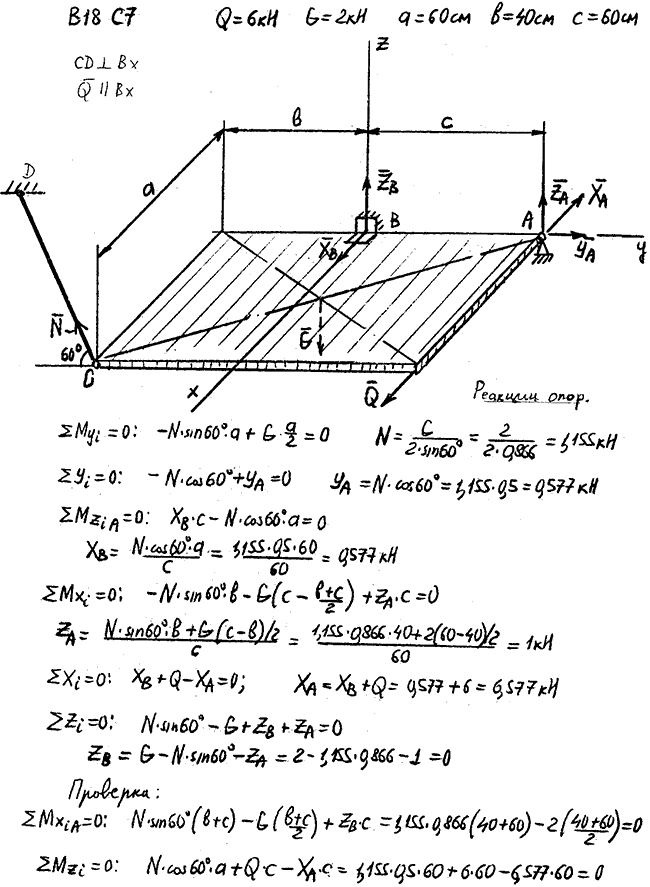 В18 С7 Q=6кН G=2кН a=60см в=40см с=60см
CD⊥Bx
Q̅ ∥ Bx
z
в
c
a
D
Z̅B
B
A
Z̅A
X̅A
X̅B
YA
y
N̅
60°
C
G̅
x
Q̅
Реакции опор.
ΣMyi=0: -N·sin60°·a + G·a/2 = 0 N = G/(2·sin60°) = 2/(2·0,866) = 1,155кН
ΣYi=0: -N·cos60°+YA=0 YA=N·cos60°=1,155·0,5=0,577кН
ΣMziA=0: XB·c-N·cos60°·a=0
XB= N·cos60°·a/c = 1,155·0,5·60/60 = 0,577кН
ΣMxi=0: -N·sin60°·в-G(c-(в+c)/2)+ZA·c=0
ZA= (N·sin60°·в+G(c-в)/2)/c = (1,155·0,866·40+2(60-40)/2)/60 = 1кН
ΣXi=0: XB+Q-XA=0; XA=XB+Q=0,577+6=6,577кН
ΣZi=0: N·sin60°-G+ZB+ZA=0
ZB=G-N·sin60°-ZA=2-1,155·0,866-1=0
Проверка:
ΣMxiA=0: N·sin60°(в+c)-G((в+c)/2)+ZB·c=1,155·0,866(40+60)-2((40+60)/2)=0
ΣMzi=0: N·cos60°·a+Q·c-XA·c=1,155·0,5·60+6·60-6,577·60=0